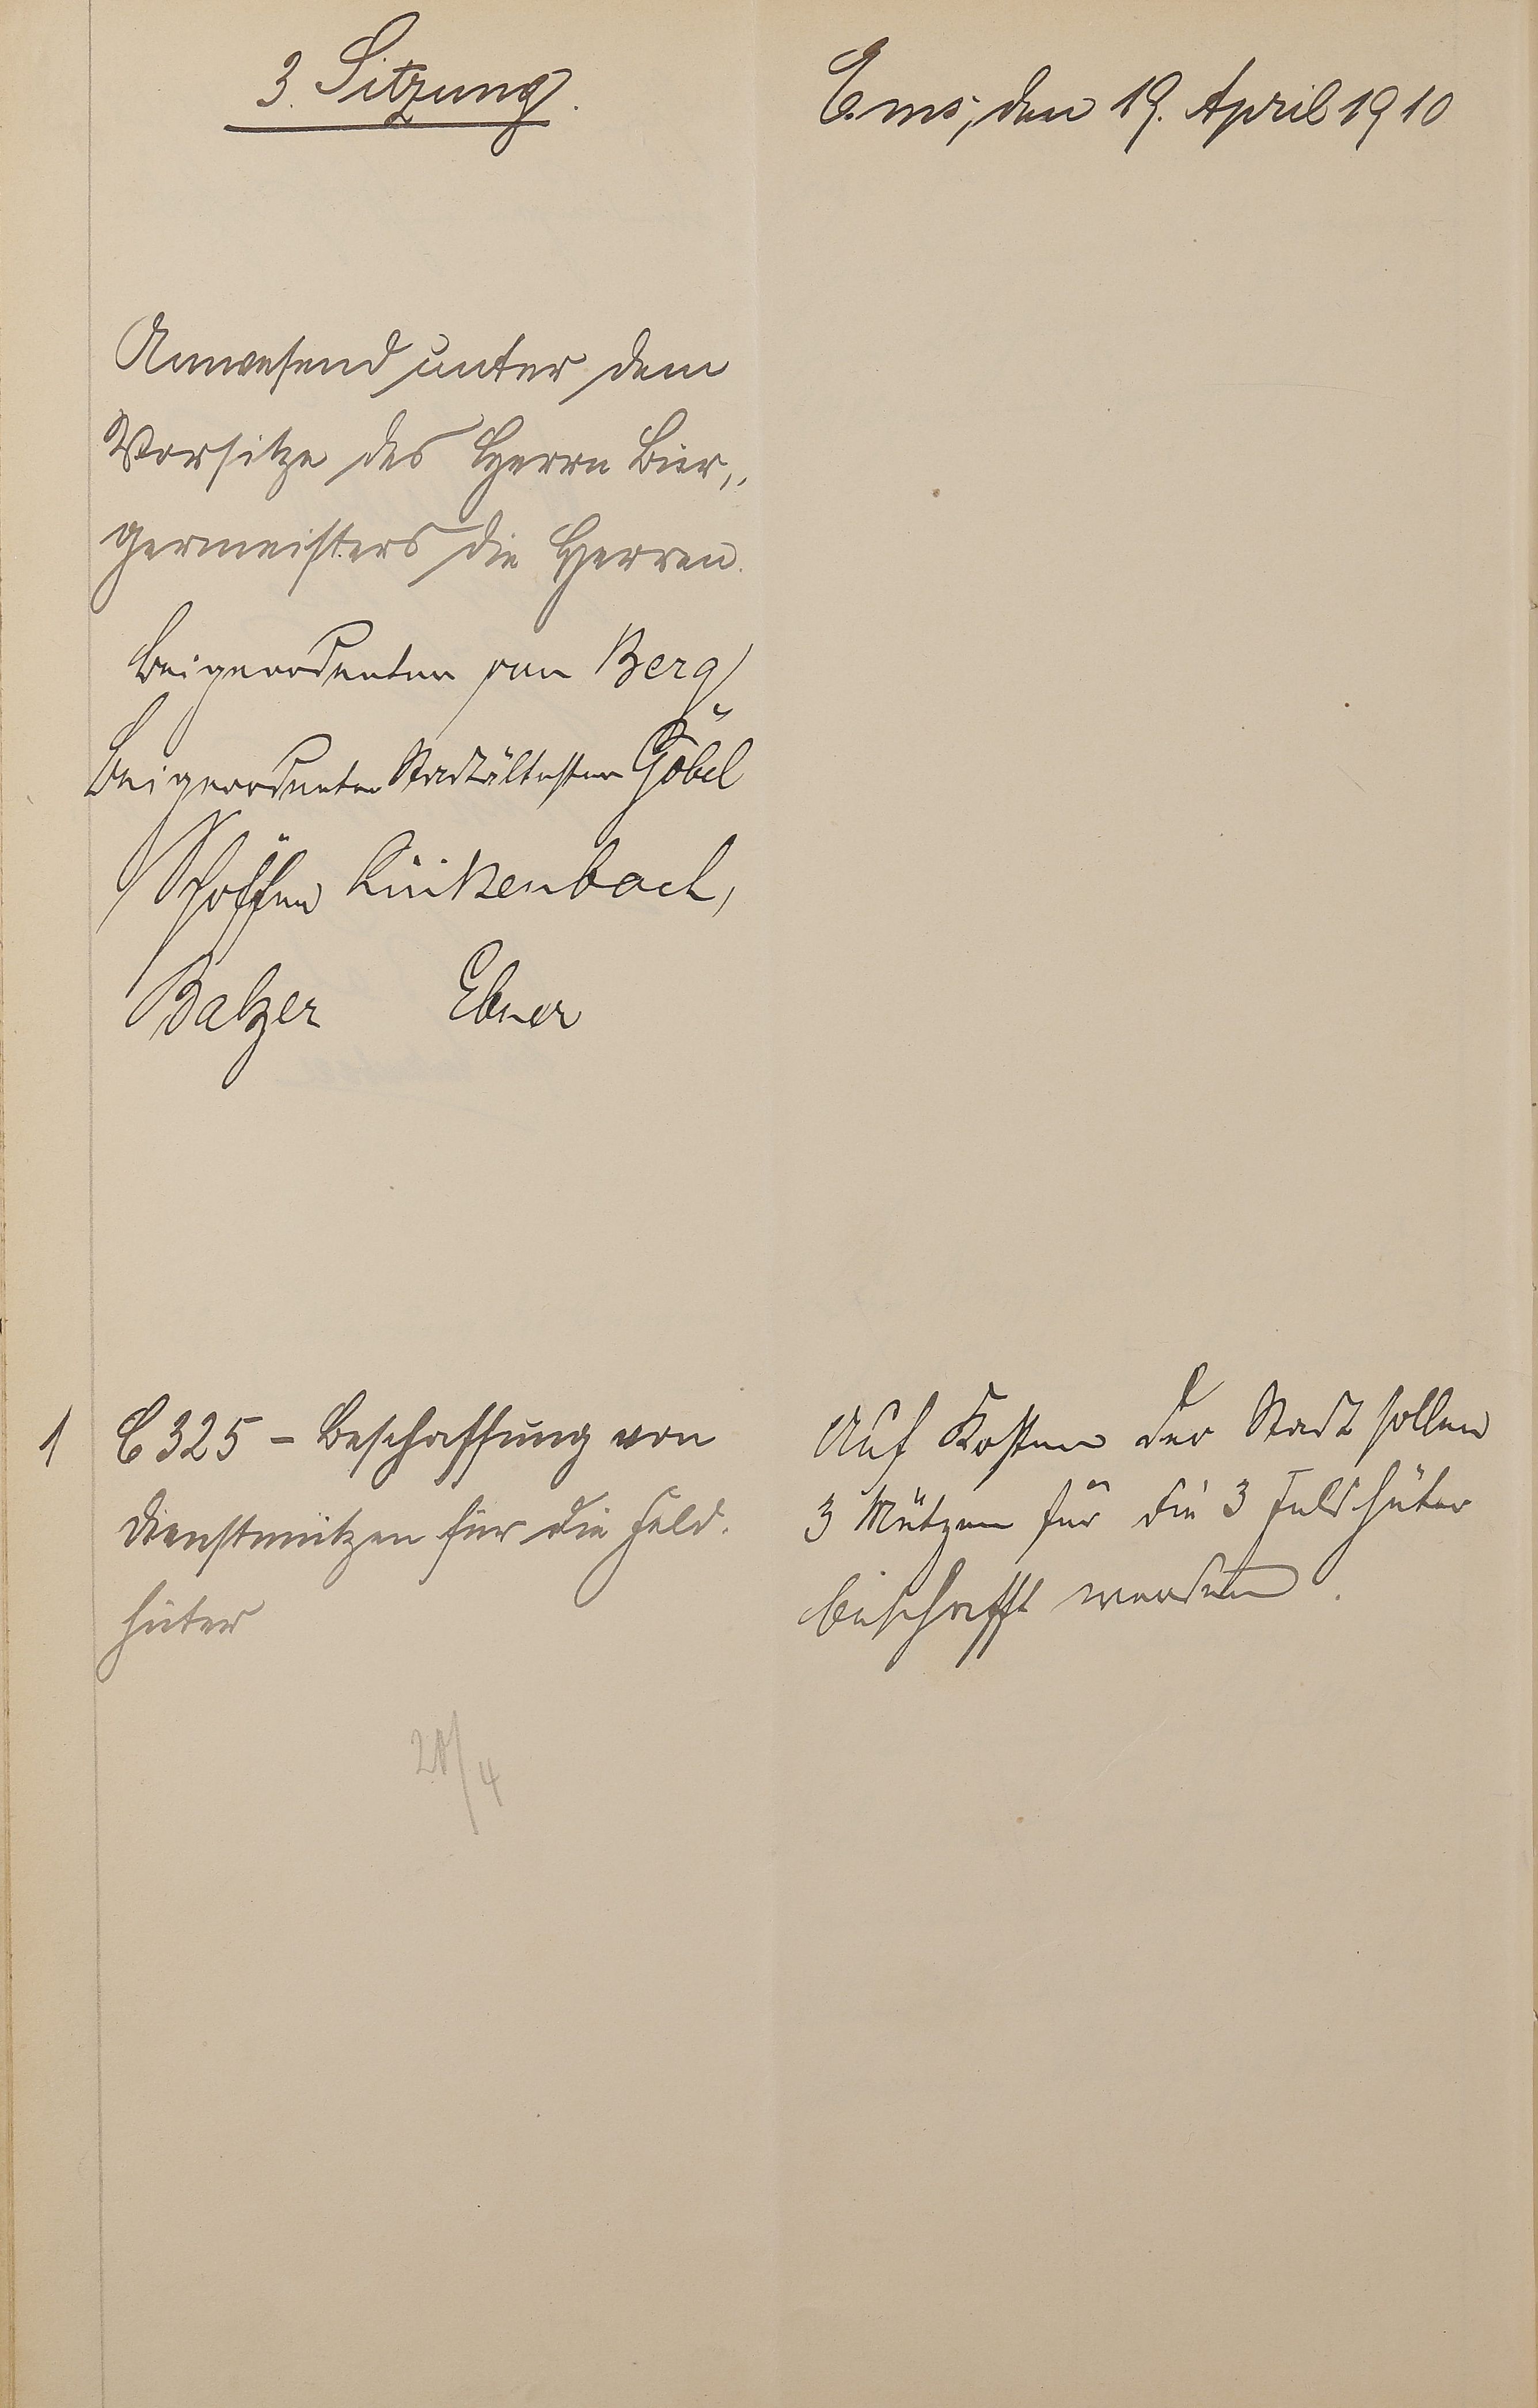 3. Sitzung.
Ems, den 19. April 1910
Anwesend unter dem
Vorsitze des Herrn Bür„
germeisters die Herren
Beigeordneten von Berg
Beigeordneten Stadtältesten Göbel
Schöffen Linkenbach,
Balzer Ebner
1 C 325 – Beschaffung von
Dienstmützen für die Feld-
hüter
Auf Kosten der Stadt sollen
3 Mützen für die 3 Feldhüter
beschafft werden.